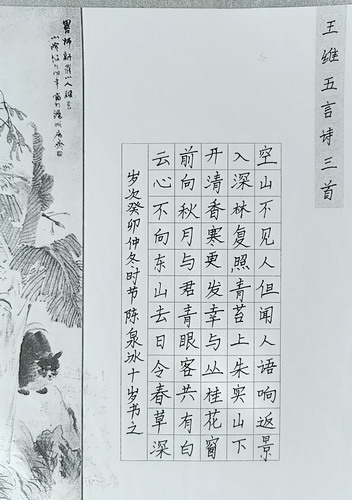 王维五言诗三首
空山不见人但闻人语响返景
入深林复照青苔上朱实山下
开清香寒更发幸与丛桂花窗
前向秋月与君青眼客共有白
云心不向东山去日令春草深
岁次癸卯仲冬时节陈泉冰十岁书之